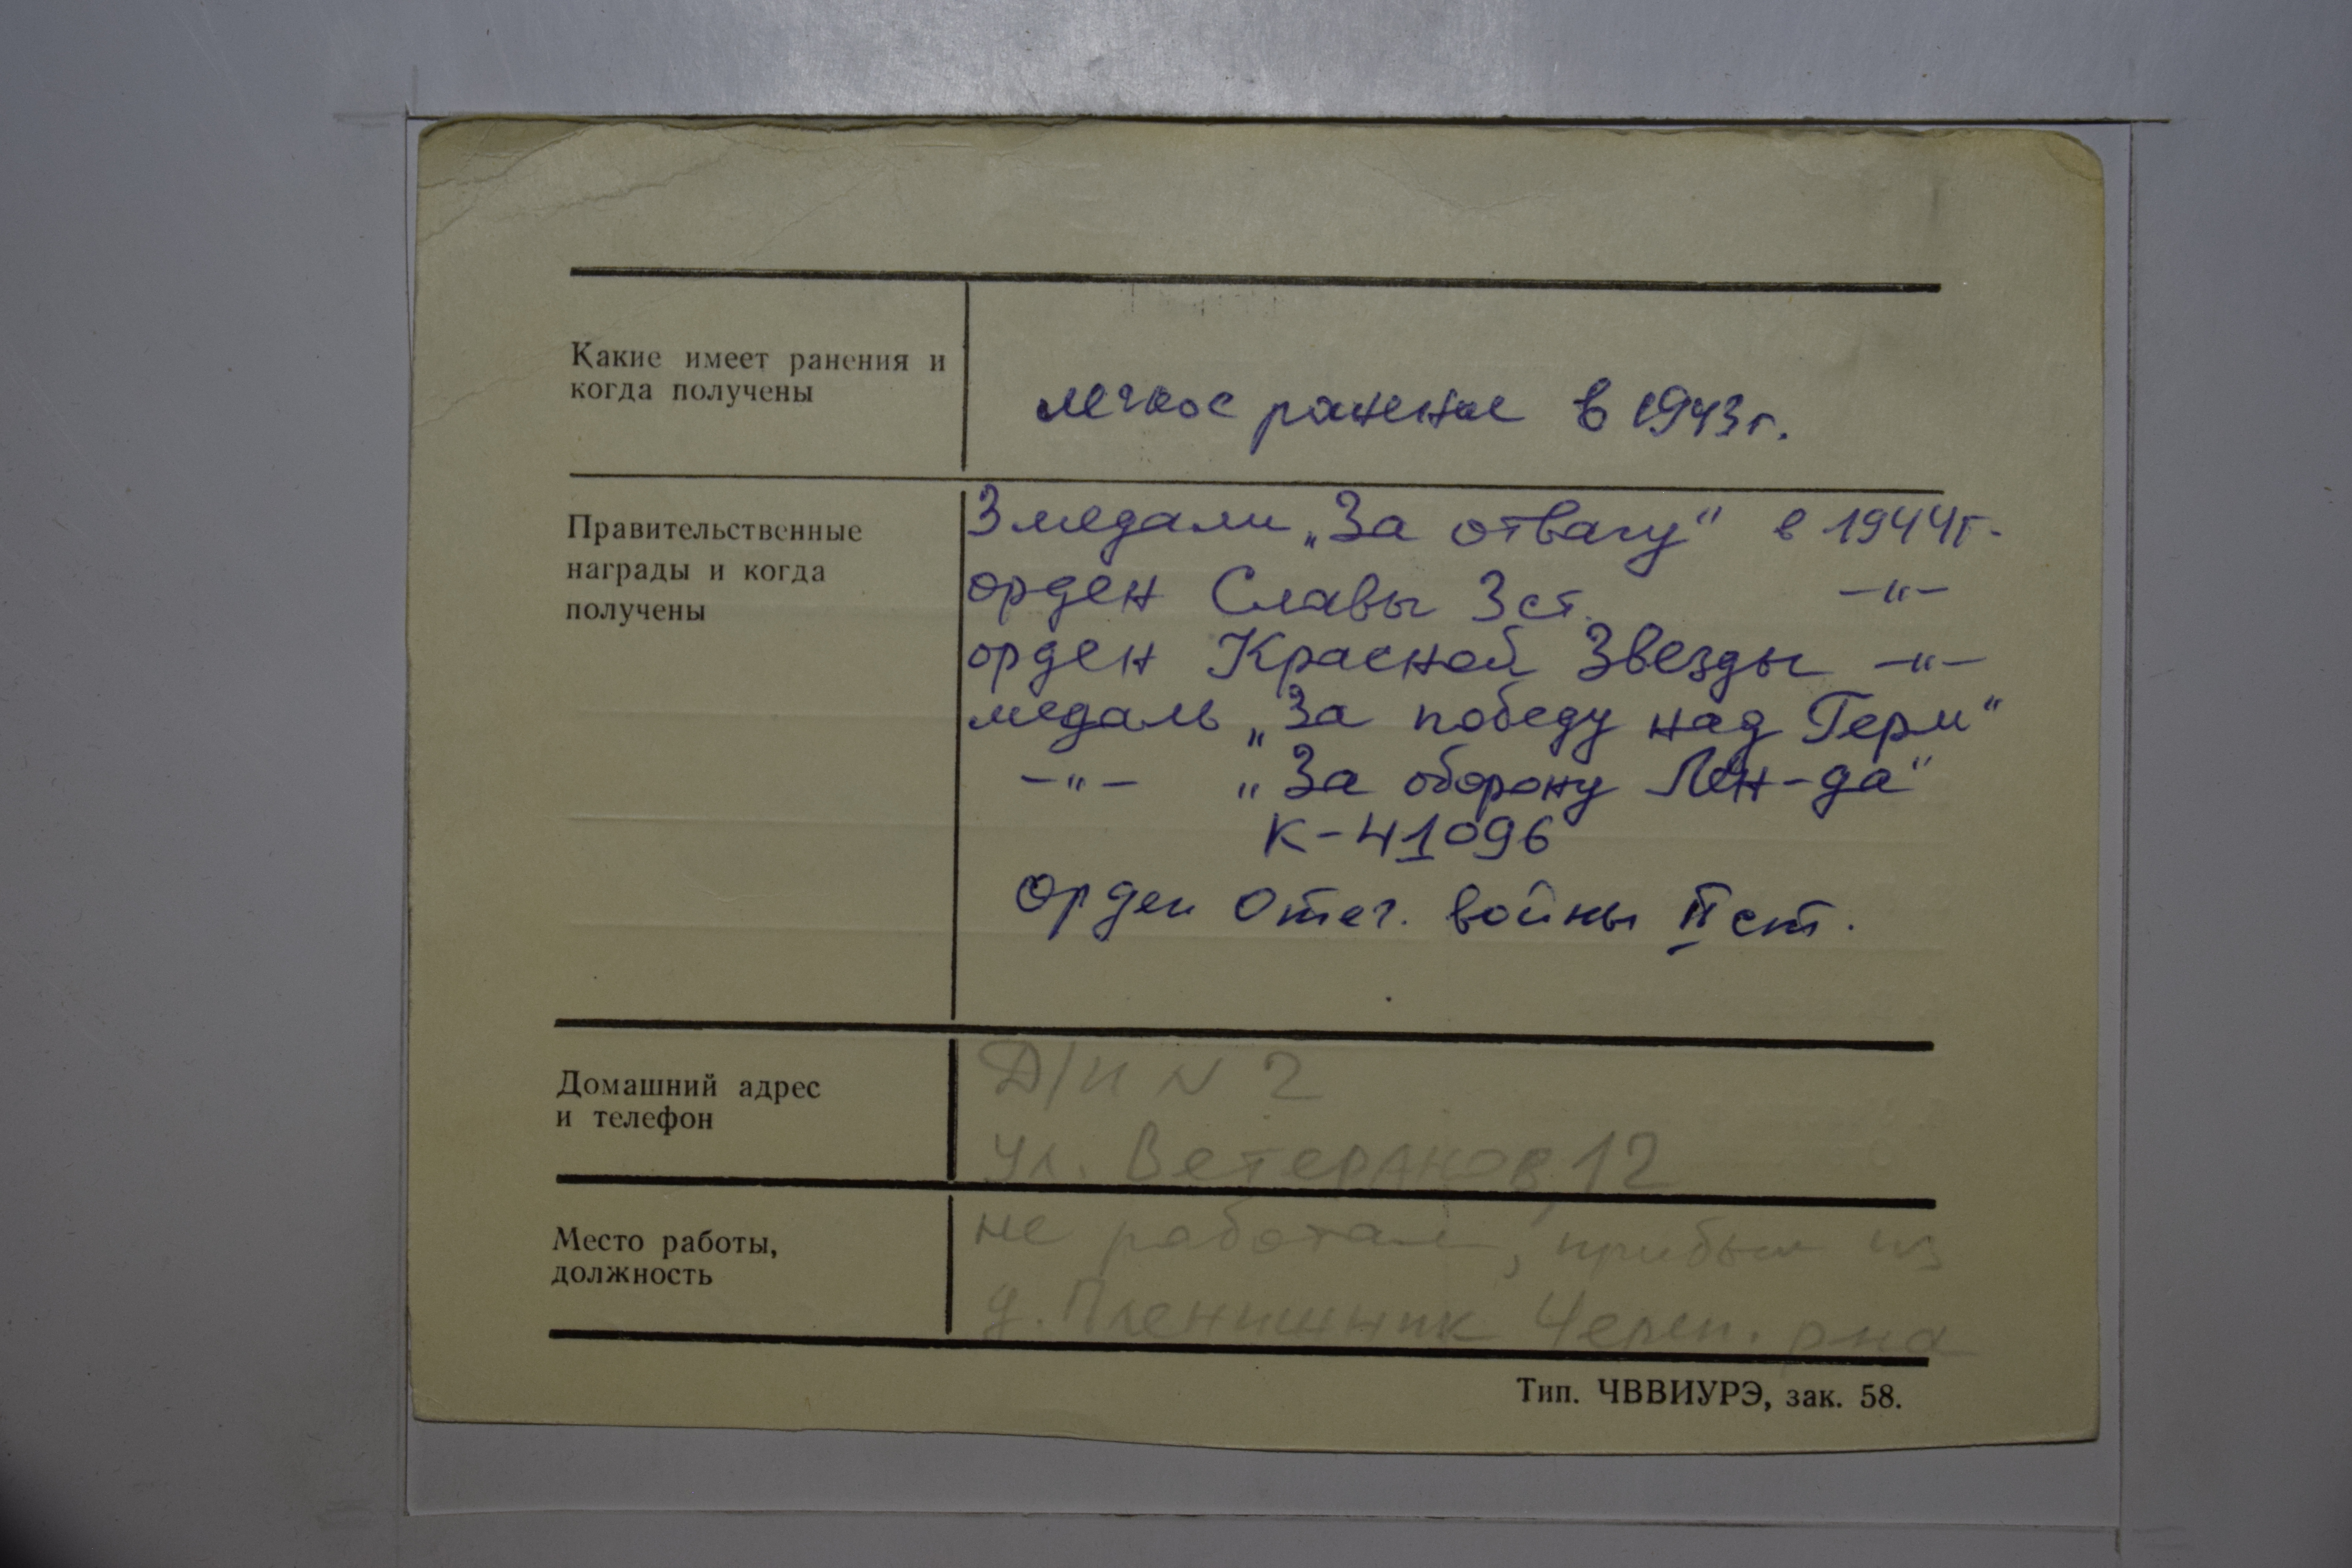 Какие имеет ранения и
когда получены
легкое ранение в 1943г.
Правительственные
награды и когда
получены
3 медали „За отвагу“ в 1944г.
орден Славы 3 ст. –"–
орден Красной Звезды –"–
медаль „За победу над Герм“
–"– „За оборону Лен-да“
К-41096
Орден Отеч. войны II ст.
Домашний адрес
и телефон
Д/И N 2
ул. Ветеранов, 12
Место работы,
должность
не работает, прибыл из
д. Пленишник Череп. р-на
Тип. ЧВВИУРЭ, зак. 58.